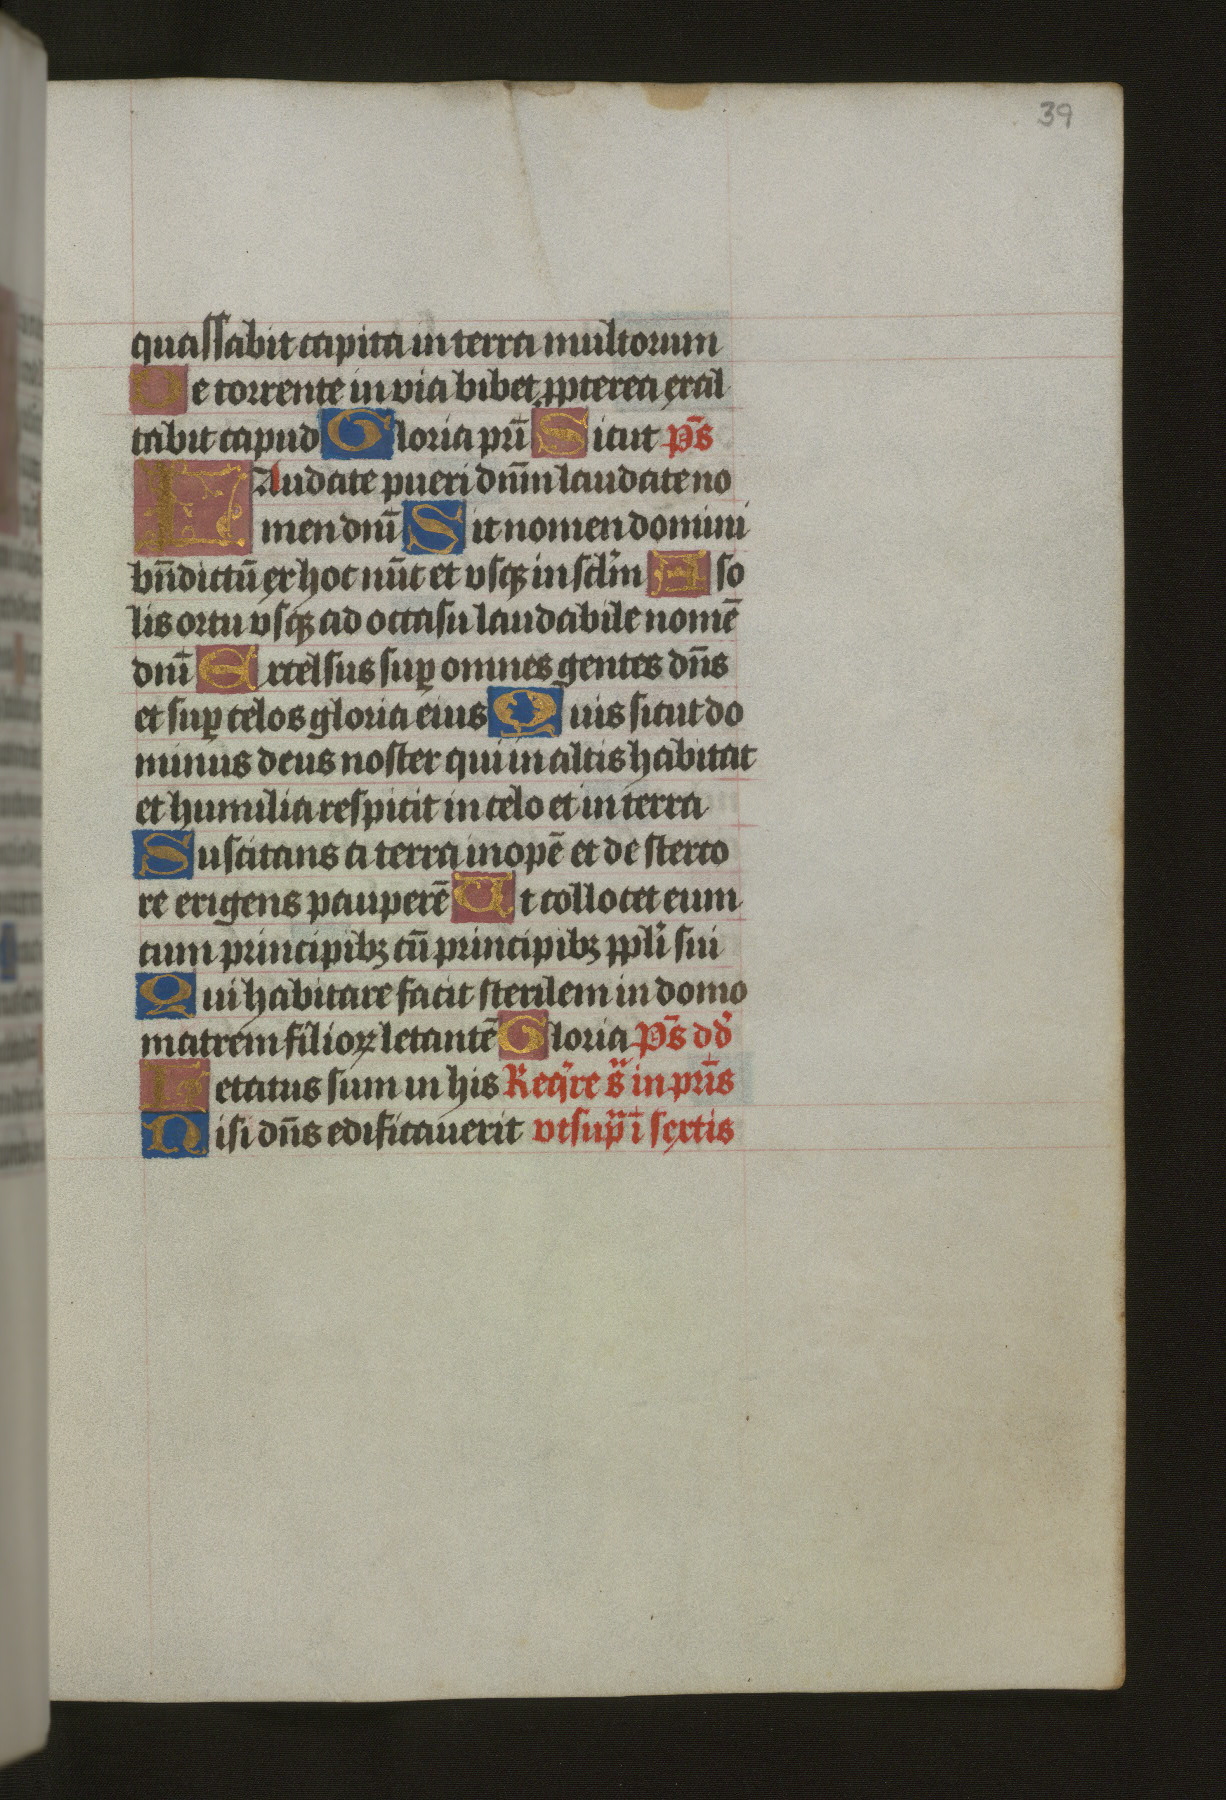 39
quassabit capita in terra multorum
De torrente in via bibet ꝓpterea exal
tabit capud Gloria pr̄i Sicut p̄s
Laudate pueri dn̄m laudate no
men dn̄i Sit nomen domini
bn̄dictū ex hoc nūc et vsqꝫ in scl̄m A so
lis ortu vsqꝫ ad occasū laudabile nomē
dn̄i Excelsus suꝑ omnes gentes dn̄s
et suꝑ celos gloria eius Quis sicut do
minus deus noster qui in altis habitat
et humilia respicit in celo et in terra
Suscitans a terra inopē et de sterco
re erigens pauperē Ut collocet eum
cum principibꝫ cū principibꝫ ppl̄i sui
Qui habitare facit sterilem in domo
matrem filioꝝ letantē Gloria P̄s dd̄
Letatus sum in his Req̄re s̄ in pr̄is
Nisi dn̄s edificauerit vt sup̄ ī sextis